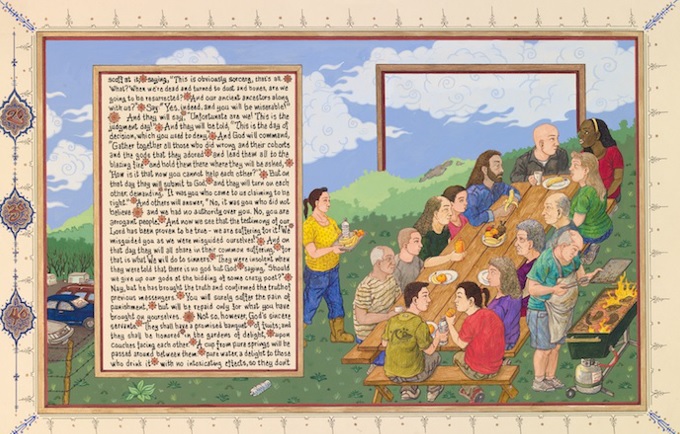 scoff at it, saying, "This is obviously sorcery, that's all.
What? When we're dead and turned to dust and bones, are we
going to be resurrected? And our ancient ancestors along
with us?" Say "Yes, indeed, and you will be miserable!"
And they will say, "Unfortunate are we! This is the
judgment day! And they will be told, "This is the day of
decision, which you used to deny. And God will command,
"Gather together all those who did wrong and their cohorts
and the gods that they adored and lead them all to the
blazing fire and hold them there where they will be asked,
"How is it that now you cannot help each other?" But on
that day they will submit to God, and they will turn on each
other, demanding, "It was you who came to us claiming to be
right!" And others will answer, "No, it was you who did not
believe and we had no authority over you. No, you are
arrogant people. And now we see that the testimony of our
Lord has been proven to be true - we are suffering for it! We
misguided you as we were misguided ourselves!" And on
that day they will all share in their common suffering, for
that is what We will do to sinners. They were insolent when
they were told that there is no god but God, saying, "Should
we give up our gods at the bidding of some crazy poet?"
Nay, but he has brought the truth and confirmed the truth of
previous messengers. You will surely suffer the pain of
punishment, but will be repaid only for what you have
brought on yourselves. Not so, however, God's sincere
servants, they shall have a promised banquet of fruits, and
they shall be honored in the gardens of delight, upon
couches facing each other. A cup from pure springs will be
passed around between them pure water, a delight to those
who drink it with no intoxicating effects, so they don't